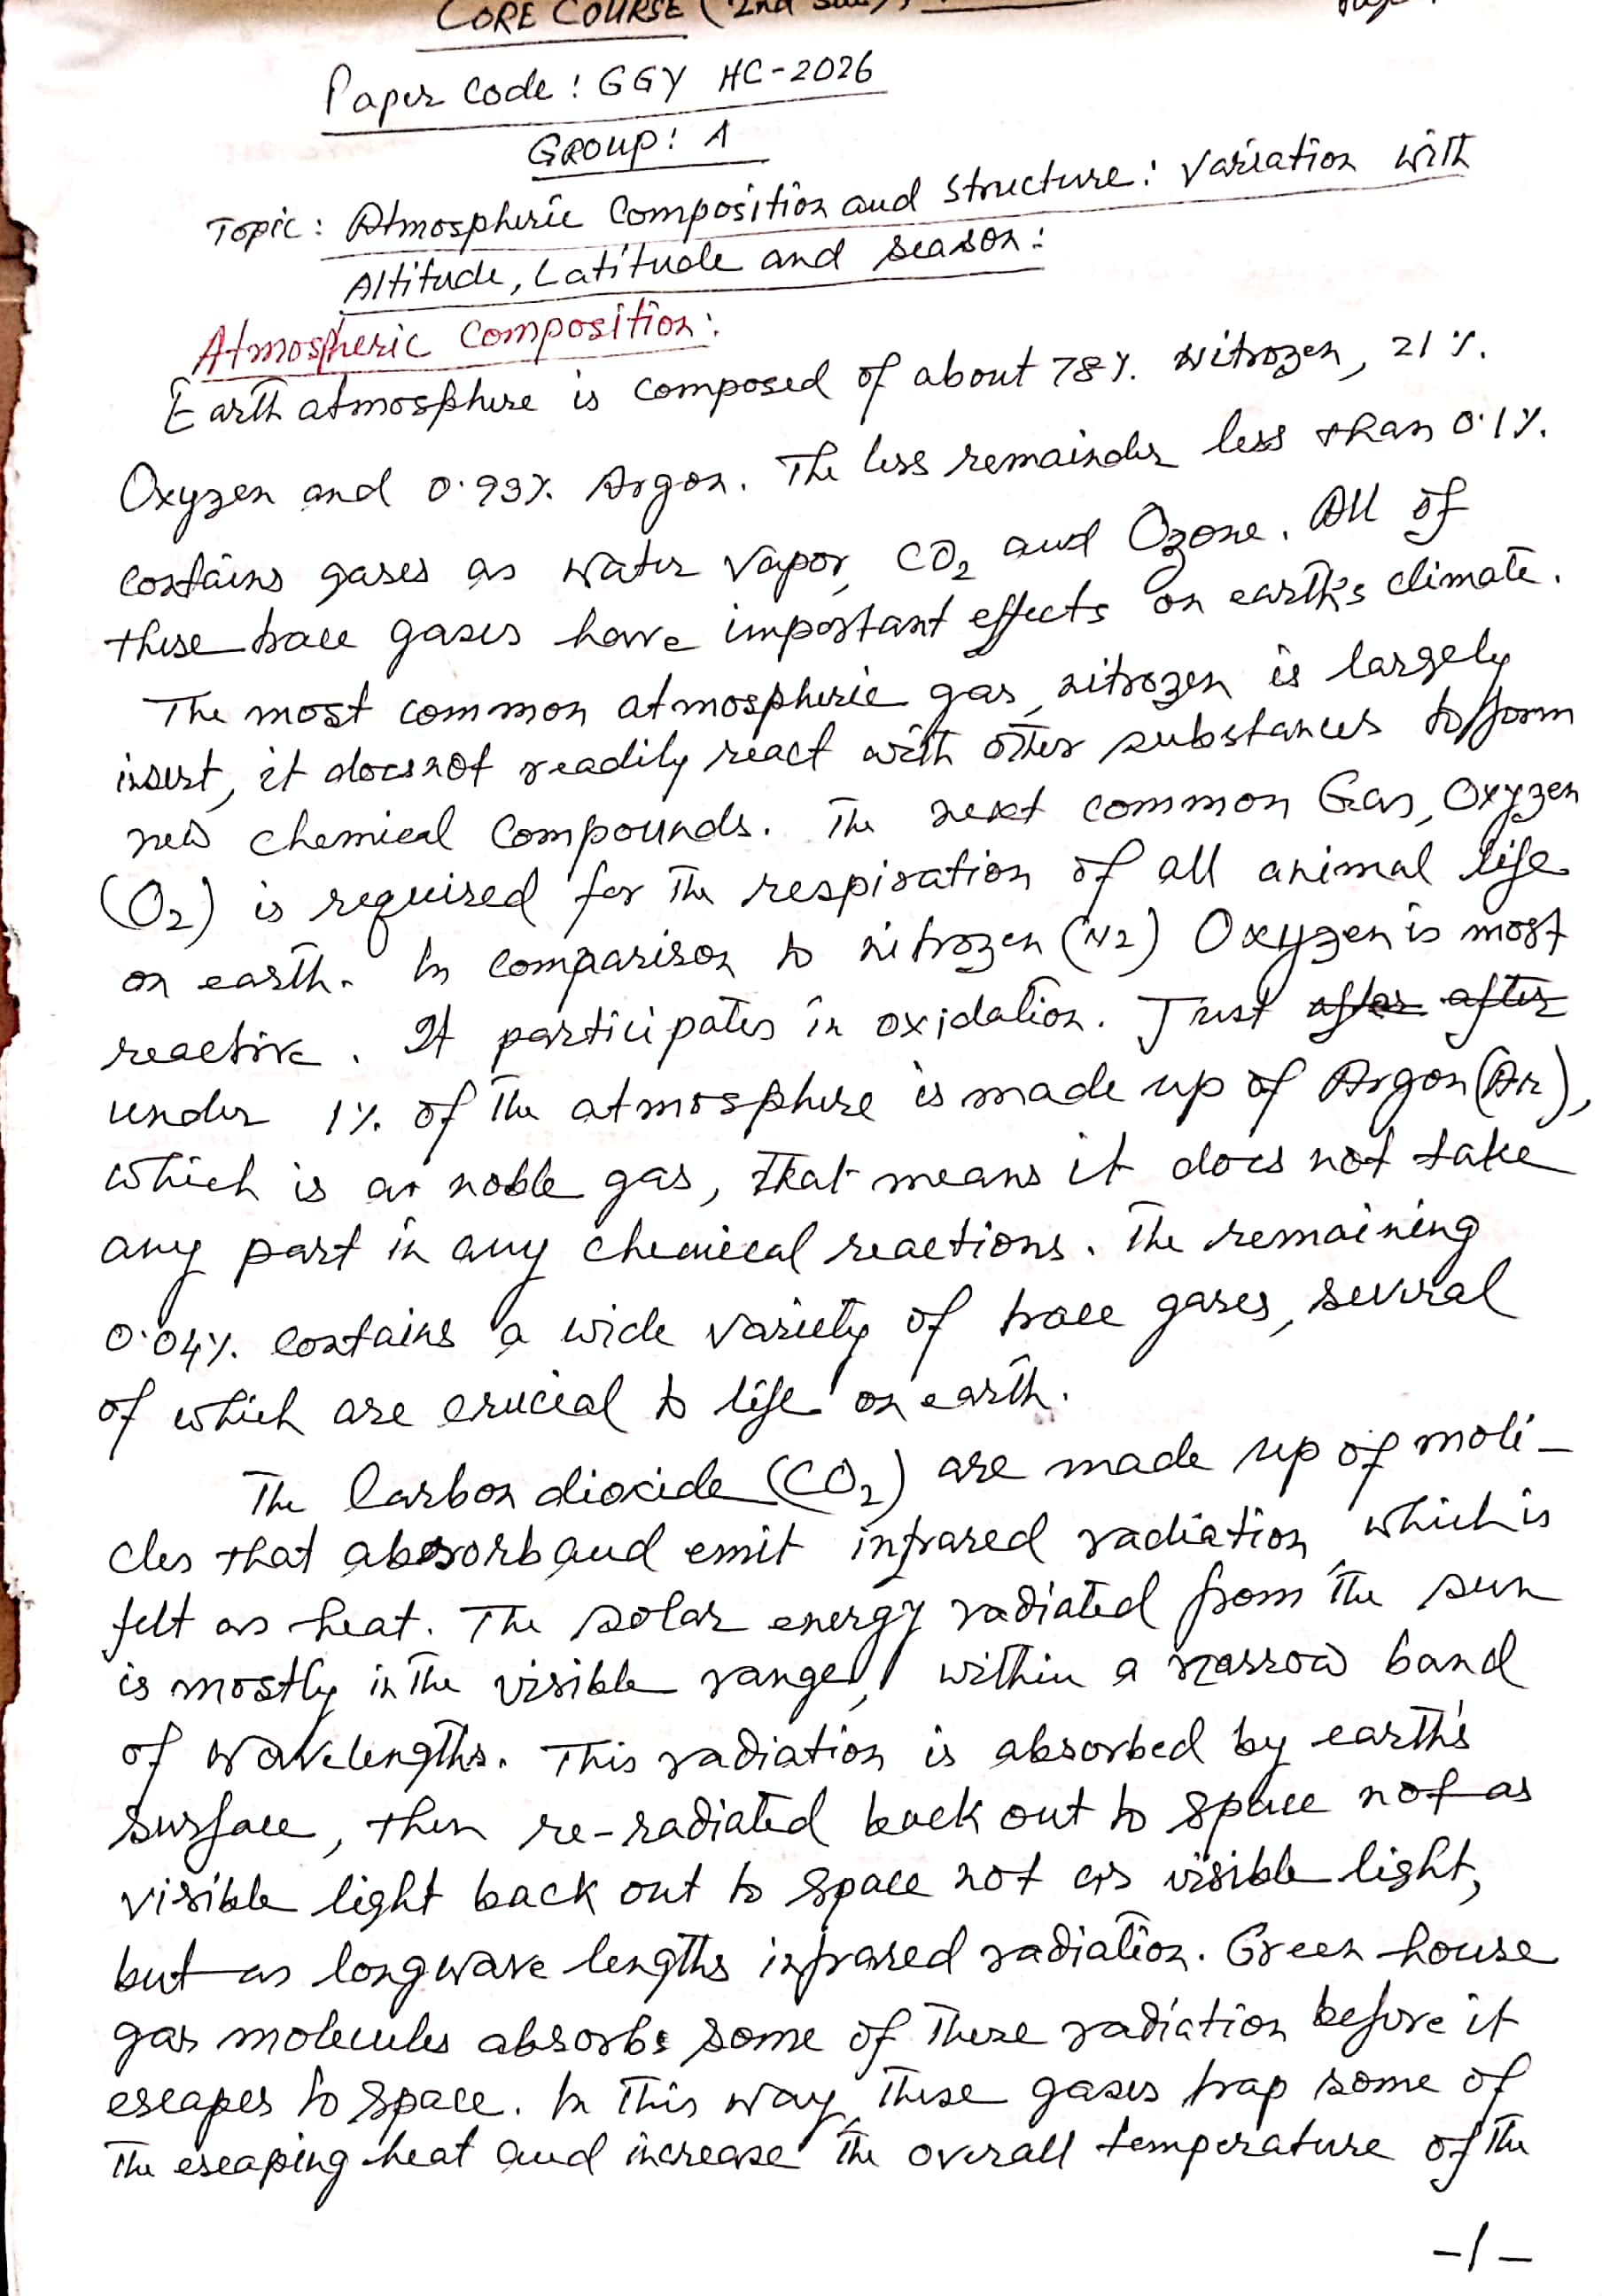 CORE COURSE (2nd
Paper Code: GGY HC-2026
GROUP: A
Topic: Atmospheric Composition and Structure: Variation with
Altitude, Latitude and Season:
Atmospheric Composition:
Earth atmosphere is composed of about 78%. Nitrogen, 21%.
Oxygen and 0.93%. Argon. The less remainder less than 0.1%.
contains gases as water vapor, CO2 and Ozone. All of
these trace gases have important effects on earth's climate.
The most common atmospheric gas, nitrogen is largely
inert, it does not readily react with other substances to form
new chemical compounds. The next common Gas, Oxygen
(O2) is required for the respiration of all animal life
on earth. In comparison to nitrogen (N2) Oxygen is most
reactive. It participates in oxidation. Just after after
under 1%. of the atmosphere is made up of Argon (Ar),
which is a noble gas, that means it does not take
any part in any chemical reactions. The remaining
0.04%. contains a wide variety of trace gases, several
of which are crucial to life on earth.
The Carbon dioxide (CO2) are made up of mole-
cles that absorb and emit infrared radiation which is
felt as heat. The solar energy radiated from the sun
is mostly in the visible range, within a narrow band
of wavelengths. This radiation is absorbed by earth's
surface, then re-radiated back out to space not as
visible light back out to space not as visible light,
but as longwave lengths infrared radiation. Green house
gas molecules absorbs some of these radiation before it
escapes to space. In this way, these gases trap some of
the escaping heat and increase the overall temperature of the
-1-